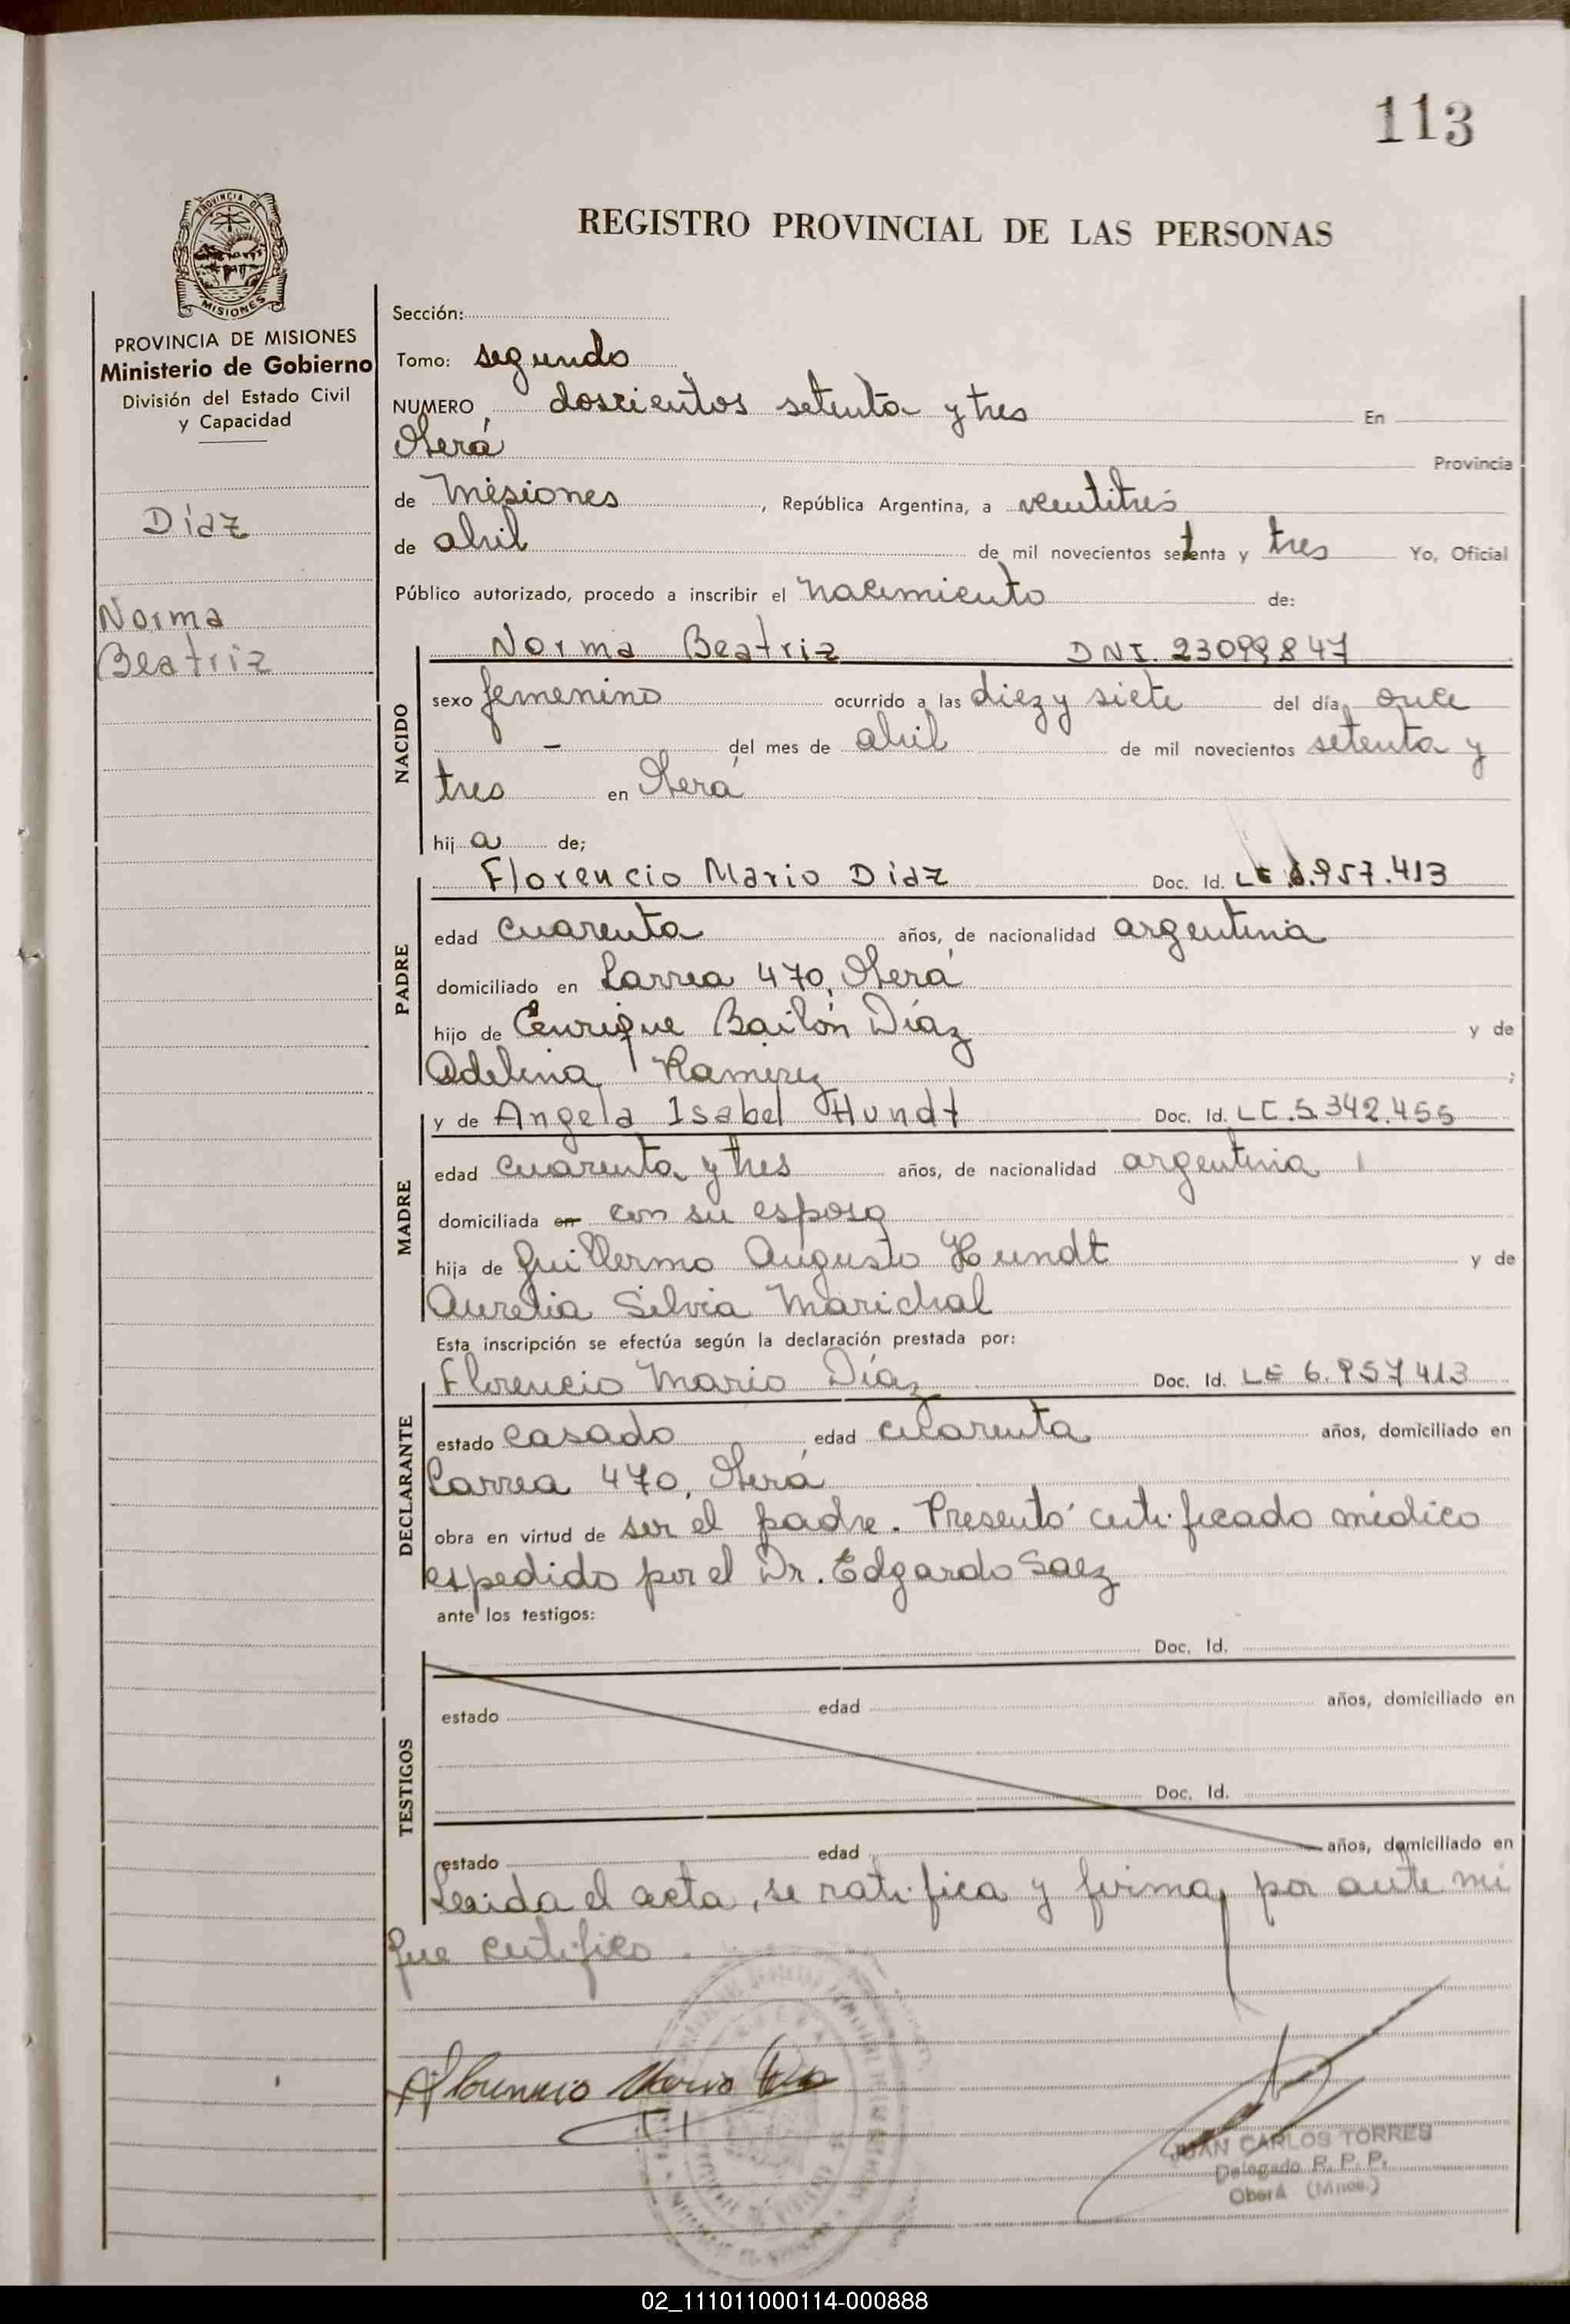 113
PROVINCIA DE
MISIONES
REGISTRO PROVINCIAL DE LAS PERSONAS
PROVINCIA DE MISIONES
Ministerio de Gobierno
División del Estado Civil
y Capacidad
Díaz
Norma
Beatriz
Sección:
Tomo: segundo
NUMERO doscientos setenta y tres En
Oberá Provincia
de Misiones, República Argentina, a veintitrés
de abril de mil novecientos setenta y tres Yo, Oficial
Público autorizado, procedo a inscribir el nacimiento de:
NACIDO
Norma Beatriz DNI. 23099847
sexo femenino ocurrido a las diez y siete del día once
— del mes de abril de mil novecientos setenta y
tres en Oberá
hij a de;
PADRE
Florencio Mario Díaz Doc. Id. LE 6.957.413
edad cuarenta años, de nacionalidad argentina
domiciliado en Larrea 470, Oberá
hijo de Enrique Bailón Díaz y de
Adelina Ramirez ;
MADRE
y de Angela Isabel Hundt Doc. Id. LC.5.342.455
edad cuarenta y tres años, de nacionalidad argentina
domiciliada en con su esposo
hija de Guillermo Augusto Hundt y de
Aurelia Silvia Marichal
Esta inscripción se efectúa según la declaración prestada por:
DECLARANTE
Florencio Mario Díaz Doc. Id. LE 6.957413
estado casado edad cuarenta años, domiciliado en
Larrea 470, Oberá
obra en virtud de ser el padre. Presentó certificado médico
espedido por el Dr. Edgardo Saez
ante los testigos:
TESTIGOS
Doc. Id.
estado edad años, domiciliado en
Doc. Id.
estado edad años, domiciliado en
Leida el acta, se ratifica y firma, por ante mi
que certifico.
Florencio Mario Díaz
JUAN CARLOS TORRES
Delegado R. P. P.
Oberá (Mnes.)
02_111011000114-000888